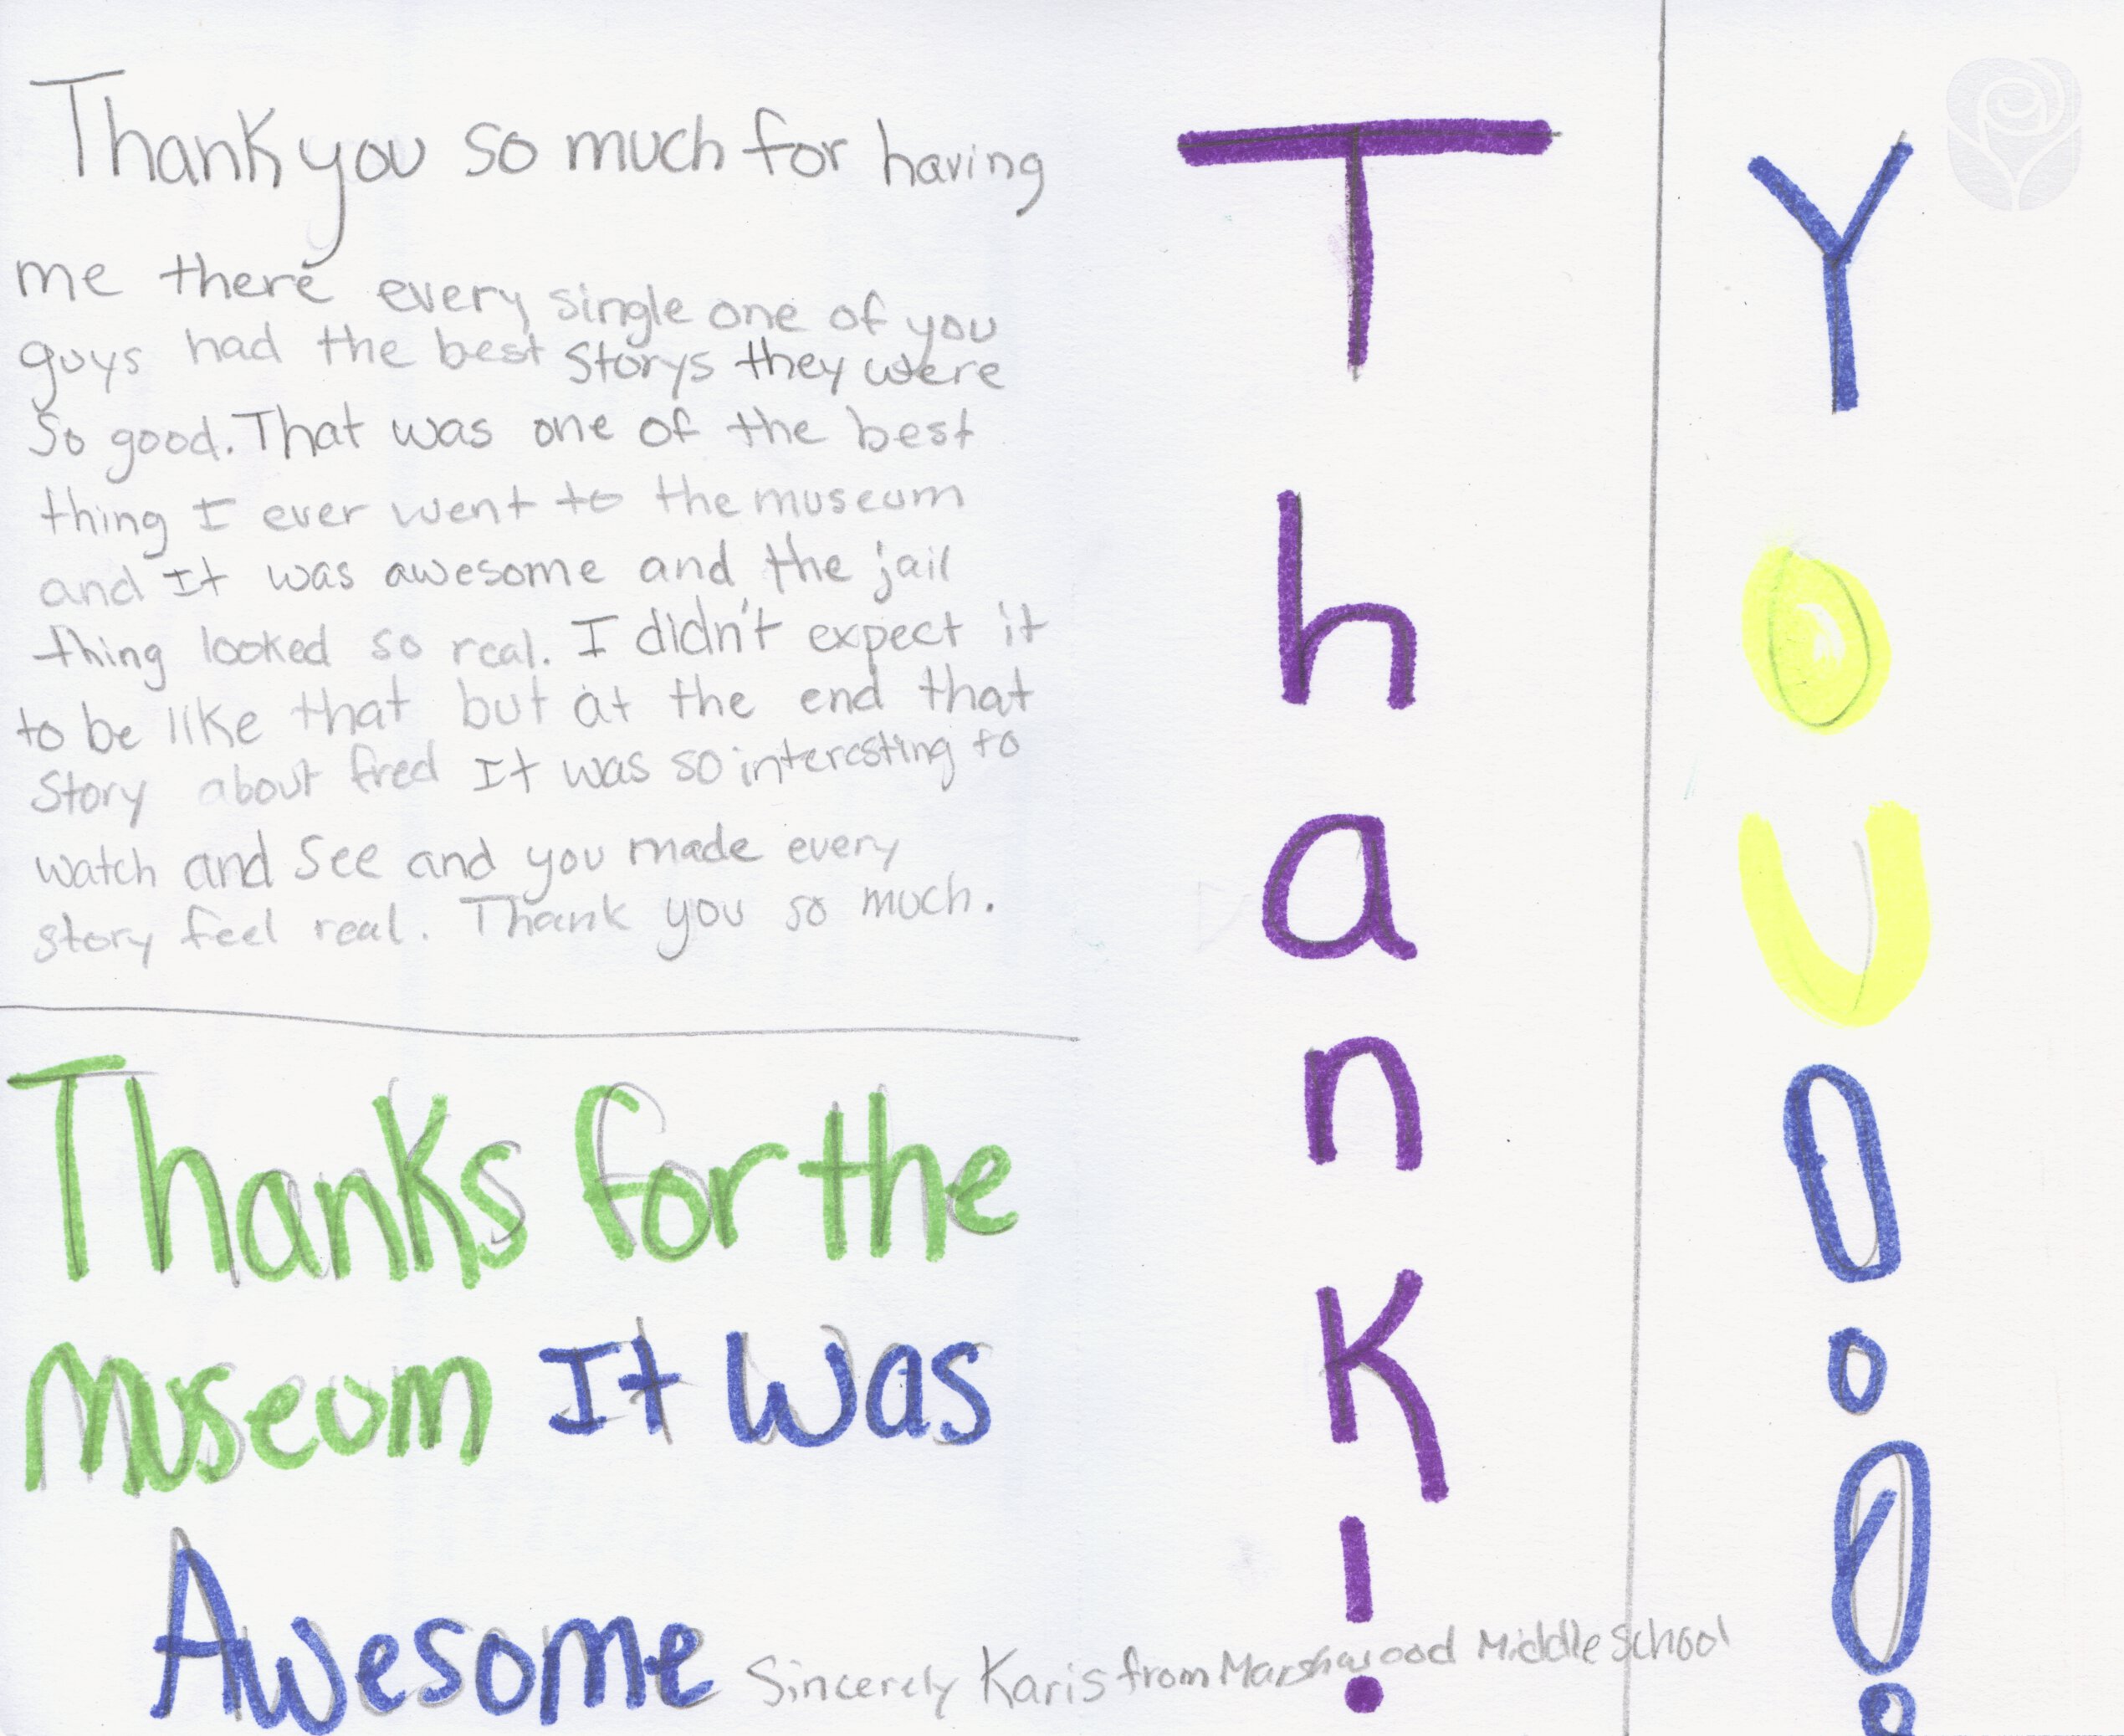 Thank you so much for having
me there every single one of you
guys had the best storys they were
so good. That was one of the best
thing I ever went to the museum
and It was awesome and the jail
thing looked so real. I didn't expect it
to be like that but at the end that
story about fred It was so interesting to
watch and see and you made every
story feel real. Thank you so much.
Thanks for the
Museum It was
Awesome
Sincerely Karis from Marshwood Middle school
T
h
a
n
k
!
Y
o
u